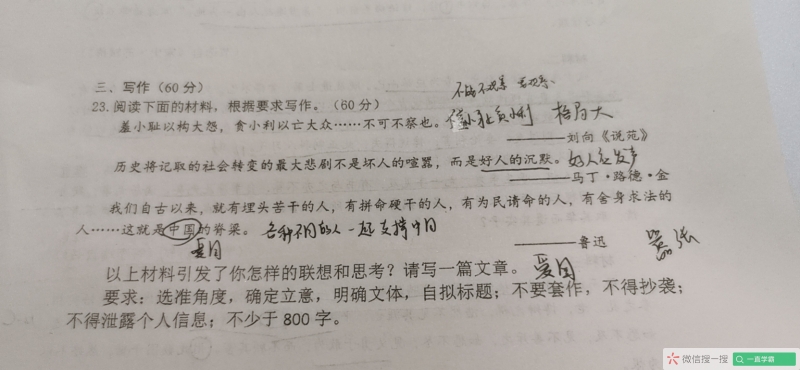 三、写作（60分）
23.阅读下面的材料，根据要求写作。（60分）
羞小耻以构大怨，贪小利以亡大众……不可不察也。 格局大
————刘向《说苑》
历史将记取的社会转变的最大悲剧不是坏人的喧嚣，而是好人的沉默。
————马丁·路德·金
我们自古以来，就有埋头苦干的人，有拼命硬干的人，有为民请命的人，有舍身求法的
人……这就是中国的脊梁。 各种不同的人一起支撑中国
爱国
————鲁迅
嚣张
以上材料引发了你怎样的联想和思考？请写一篇文章。 爱国
要求：选准角度，确定立意，明确文体，自拟标题；不要套作，不得抄袭；
不得泄露个人信息；不少于800字。
微信搜一搜 一直学霸